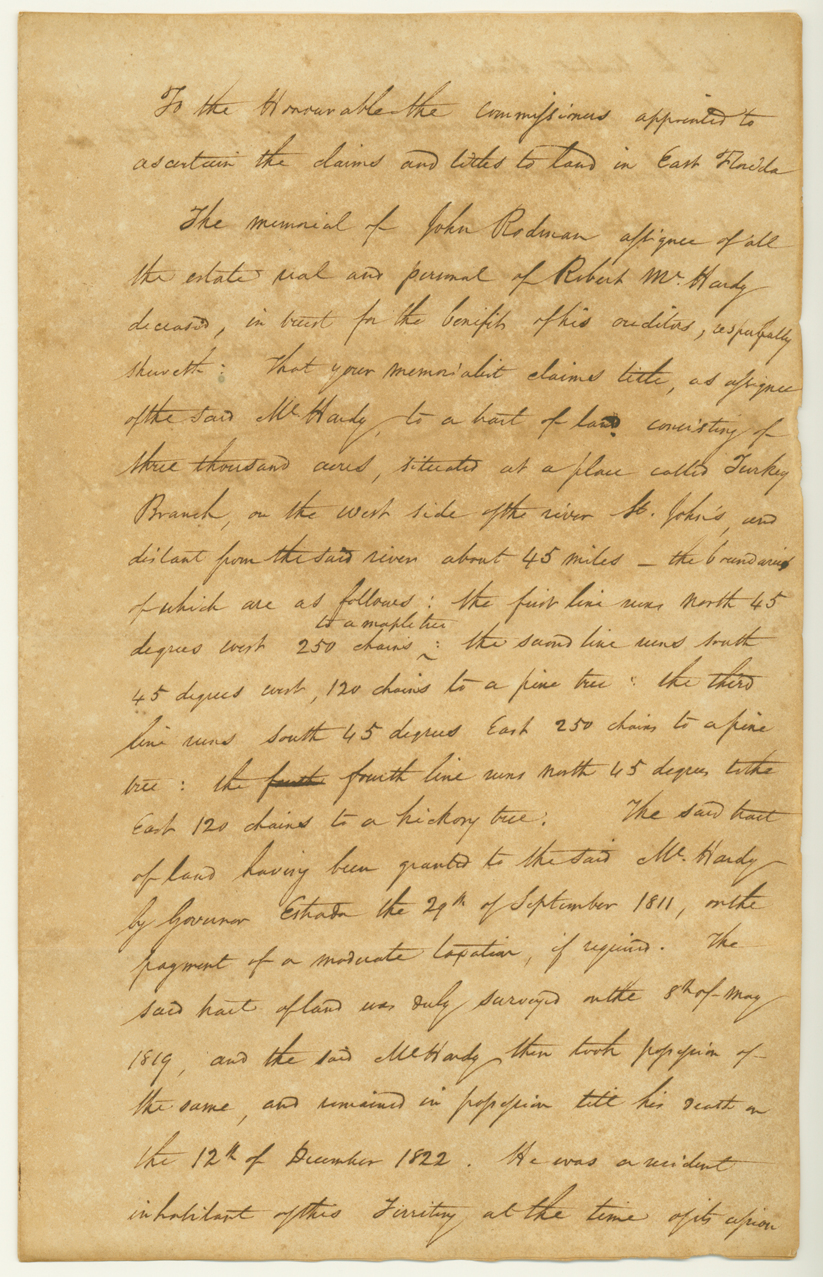 To the Honourable the commissioners appointed to
ascertain the claims and titles to land in East Florida
The memorial of John Rodman assignee of all
the estate real and personal of Robert Mc Hardy
deceased, in trust for the benefit of his creditors, respectfully
sheweth: That your memorialist claims title, as assignee
of the said Mc Hardy, to a tract of land consisting of
three thousand acres, situated at a place called Turkey
Branch, on the west side of the river St. John's, and
distant from the said river about 45 miles — the boundaries
of which are as follows: the first line runs North 45
to a maple tree
degrees west 250 chains : the second line runs South
45 degrees west, 120 chains to a pine tree : the third
line runs South 45 degrees East 250 chains to a pine
tree : the fourth fourth line runs North 45 degrees to the
East 120 chains to a hickory tree: The said tract
of land having been granted to the said Mc Hardy
by Governor Estrada the 29th of September 1811, on the
payment of a moderate taxation, if required. The
said tract of land was duly surveyed on the 8th of May
1819, and the said McHardy then took possession of
the same, and remained in possession till his death on
the 12th of December 1822. He was a resident
inhabitant of this Territory at the time of its cession